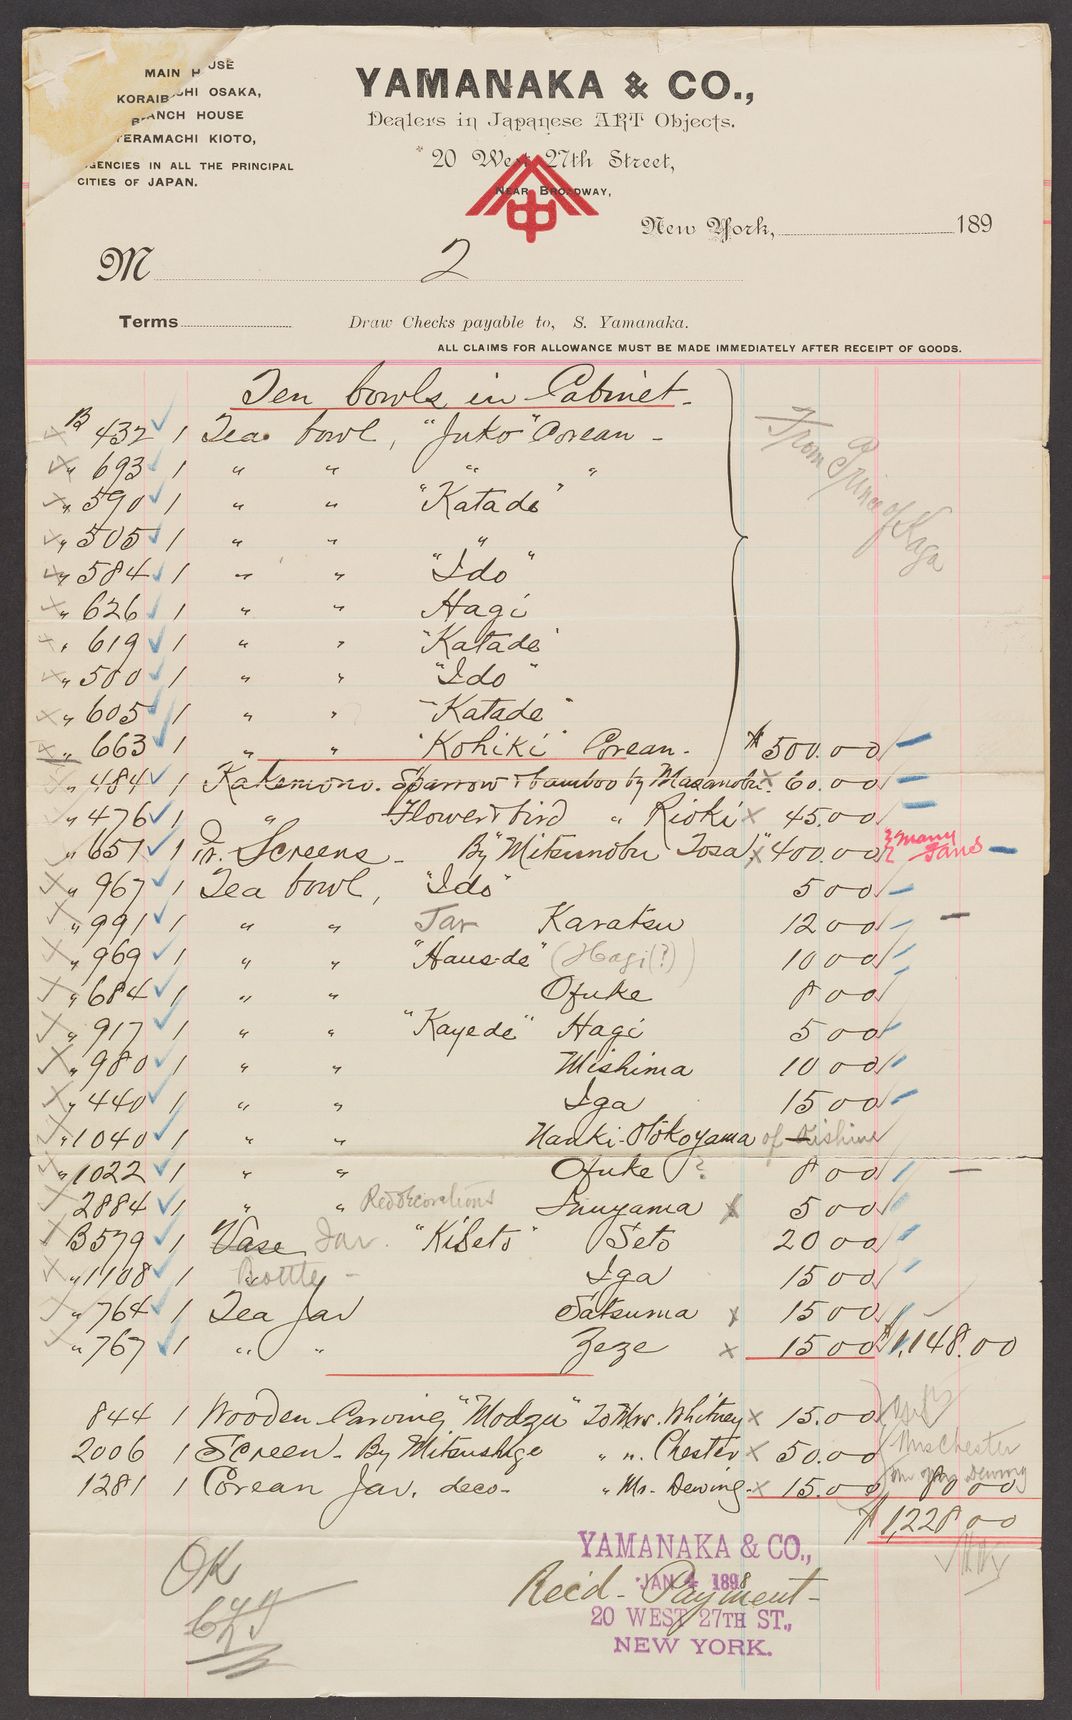 MAIN HOUSE
KORAIBASHI OSAKA,
BRANCH HOUSE
TERAMACHI KIOTO,
AGENCIES IN ALL THE PRINCIPAL
CITIES OF JAPAN.
YAMANAKA & CO.,
Dealers in Japanese ART Objects.
20 West 27th Street,
NEAR BROADWAY,
中
New York, 189
M 2
Terms
Draw Checks payable to, S. Yamanaka.
ALL CLAIMS FOR ALLOWANCE MUST BE MADE IMMEDIATELY AFTER RECEIPT OF GOODS.
Ten bowls in Cabinet -
From Prince of Kaga
B 432 1 Tea bowl, "Juko" Corean -
" 693 1 " " " "
" 590 1 " " "Katade"
" 505 1 " " "
" 584 1 " " "Ido"
" 626 1 " " Hagi
" 619 1 " " "Katade"
" 500 1 " " "Ido"
" 605 1 " " "Katade"
" 663 1 " " "Kohiki" Corean - $500.00
" 484 1 Kakemono. Sparrow & bamboo by Masanobu. 60.00
" 476 1 " Flower & bird " Rioki 45.00
" 651 1 pr. Screens - By "Mitsunobu Tosa" 400.00
" 967 1 Tea bowl, "Ido" 5 00
" 991 1 " " Jar Karatsu 12 00
" 969 1 " " "Haus-de" (Hagi(?)) 10 00
" 684 1 " " Ofuke 8 00
" 917 1 " " "Kayede" Hagi 5 00
" 980 1 " " Mishima 10 00
" 440 1 " " Iga 15 00
" 1040 1 " " Nanki-Otokoyama of Kishiu
" 1022 1 " " Ofuke ? 8 00
" 2884 1 " " Red Decorations Inuyama 5 00
B 579 1 Vase Jar. "KiSeto" Seto 20 00
" 1108 1 Bottle - Iga 15 00
" 764 1 Tea Jar Satsuma 15 00
" 767 1 " " Zeze 15 00 $1,148.00
844 1 Wooden Carving "Modzu" To Mrs. Whitney 15.00
2006 1 Screen - By Mitsushige " ". Chester 50.00 Mrs Chester
1281 1 Corean Jar. deco- " Mr. Dewing - 15.00 80 00
$1,228 00
OK
YAMANAKA & CO.,
JAN 4 1898
Rec'd - Payment -
20 WEST 27TH ST.,
NEW YORK.